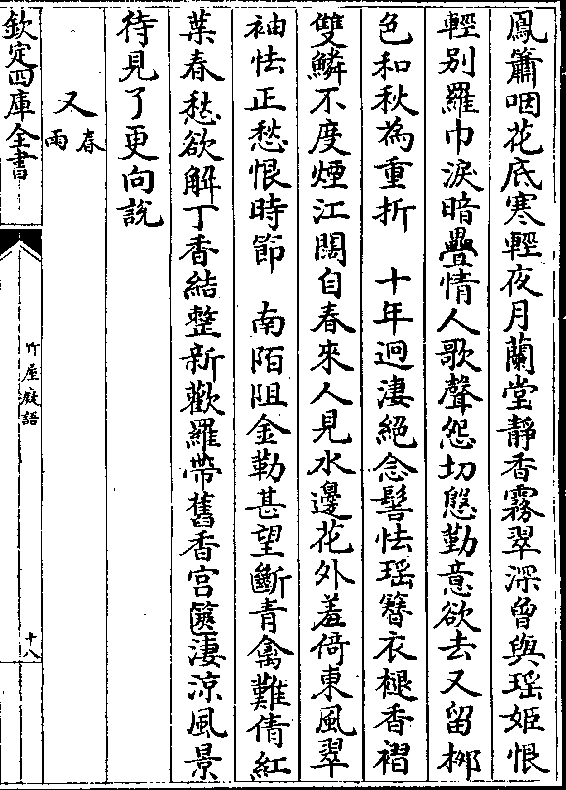 鳳簫咽花底寒輕夜月蘭堂靜香霧翠深曾與瑤姬恨
輕別羅巾淚暗疊情人歌聲怨切慇勤意欲去又留栁
色和秋為重折　十年迥淒絕念髻怯瑶簪衣褪香褶
雙鱗不度煙江闊自春來人見水邊花外羞倚東風翠
袖怯正愁恨時節　南陌阻金勒甚望斷青禽難倩紅
葉春愁欲解丁香結整新歡羅帶舊香宫篋淒凉風景
待見了更向說
又春雨
欽定四庫全書
竹屋癡語
十八